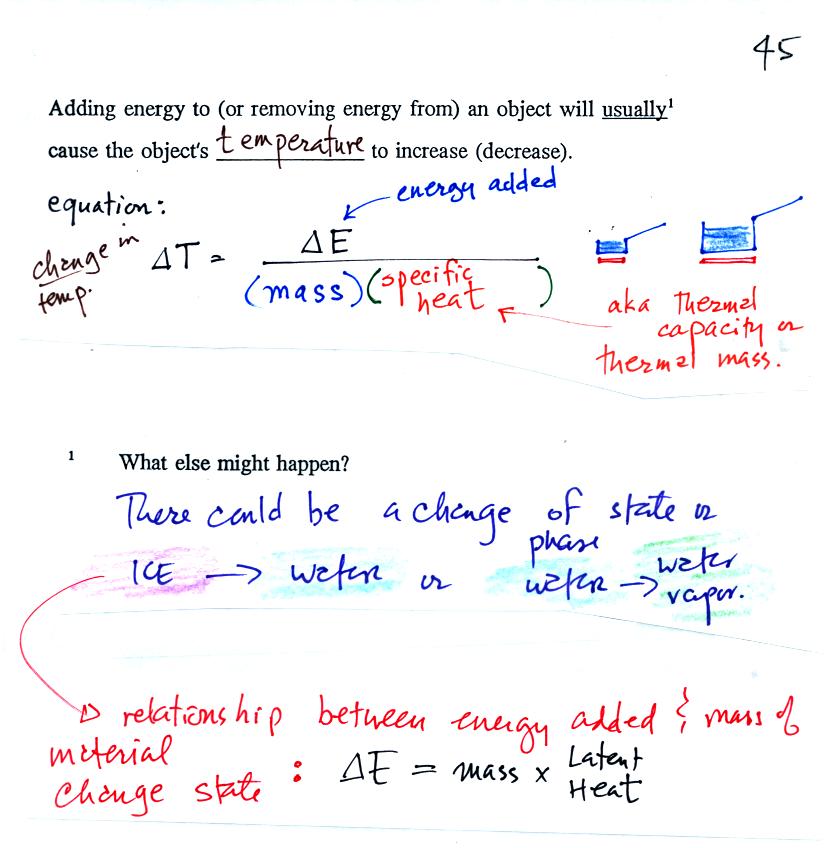 45
Adding energy to (or removing energy from) an object will usually¹
cause the object's temperature to increase (decrease).
equation:
energy added
change in
temp.
ΔT = ΔE
(mass)(specific
heat)
aka thermal
capacity or
thermal mass.
¹ What else might happen?
There could be a change of state or
phase
ICE → water or water → water
vapor.
relationship between energy added & mass of
material
change state : ΔE = mass x Latent
Heat